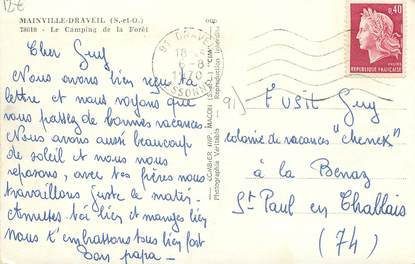 MAINVILLE-DRAVEIL (S.-et-O.)
78610 - Le Camping de la Forêt
Cher Guy
Nous avons bien reçu ta
lettre et nous voyons que
vous passez de bonnes vacances.
Nous avons aussi beaucoup
de soleil et nous nous
reposons, avec tes frères nous
travaillons juste le matin.
Amuses toi bien et manges bien
nous t'embrassons tous bien fort
ton papa -
91 DRAVEIL
18 H
6-8
1970
ESSONNE
COMBIER IMP. MACON
Photographie Véritable
Reproduction interdite
0,40
REPUBLIQUE FRANÇAISE
91) FUSIT Guy
colonie de vacances "chenex"
à la Benaz
St Paul en Chablais
(74)